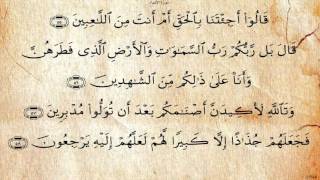 قَالُوٓا۟ أَجِئْتَنَا بِٱلْحَقِّ أَمْ أَنتَ مِنَ ٱللَّـٰعِبِينَ ٥٥
قَالَ بَل رَّبُّكُمْ رَبُّ ٱلسَّمَـٰوَٰتِ وَٱلْأَرْضِ ٱلَّذِى فَطَرَهُنَّ
وَأَنَا۠ عَلَىٰ ذَٰلِكُم مِّنَ ٱلشَّـٰهِدِينَ ٥٦
وَتَٱللَّهِ لَأَكِيدَنَّ أَصْنَـٰمَكُم بَعْدَ أَن تُوَلُّوا۟ مُدْبِرِينَ ٥٧
فَجَعَلَهُمْ جُذَٰذًا إِلَّا كَبِيرًا لَّهُمْ لَعَلَّهُمْ إِلَيْهِ يَرْجِعُونَ ٥٨